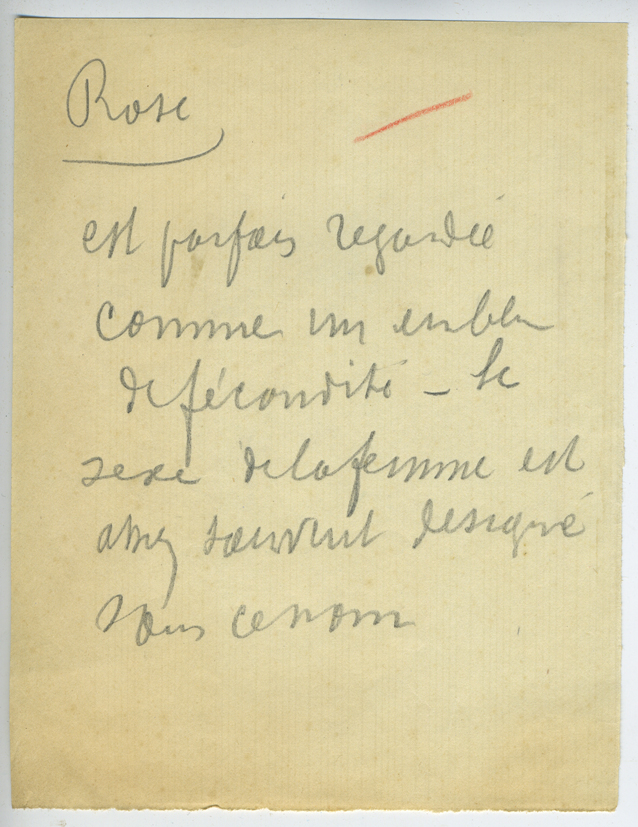 Rose
est parfois regardée
comme un emblème
de fécondité – le
sexe de la femme est
assez souvent designé
sous ce nom